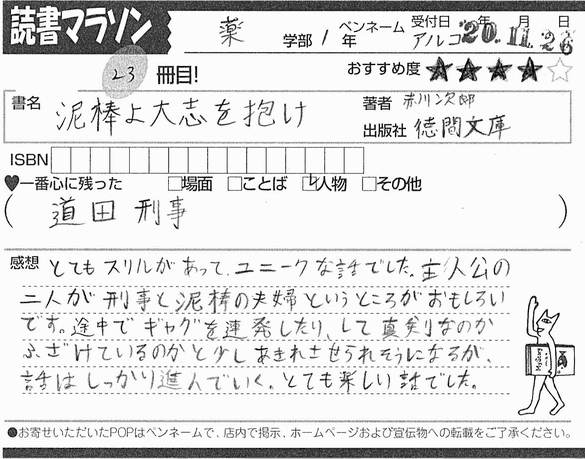 読書マラソン
薬 学部 / 年 ペンネーム アルコ 受付日 '20年 11月 26日
23 冊目! おすすめ度 ★★★★☆
書名 泥棒よ大志を抱け 著者 赤川次郎
出版社 徳間文庫
ISBN
♥一番心に残った □場面 □ことば ☑人物 □その他
( 道田 刑事 )
感想 とてもスリルがあって、ユニークな話でした。主人公の
二人が刑事と泥棒の夫婦というところがおもしろい
です。途中でギャグを連発したり、して真剣なのか
ふざけているのかと少しあきれさせられそうになるが、
話はしっかり進んでいく。とても楽しい話でした。
Mystery
●お寄せいただいたPOPはペンネームで、店内で掲示、ホームページおよび宣伝物への転載をご了承ください。